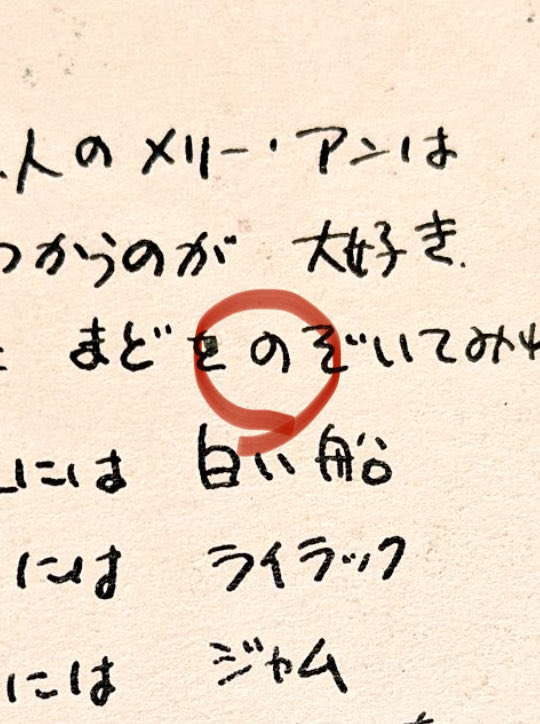 人のメリー・アンは
つからのが 大好き.
まどをのぞいてみれ
には 白い船
には ライラック
には ジャム